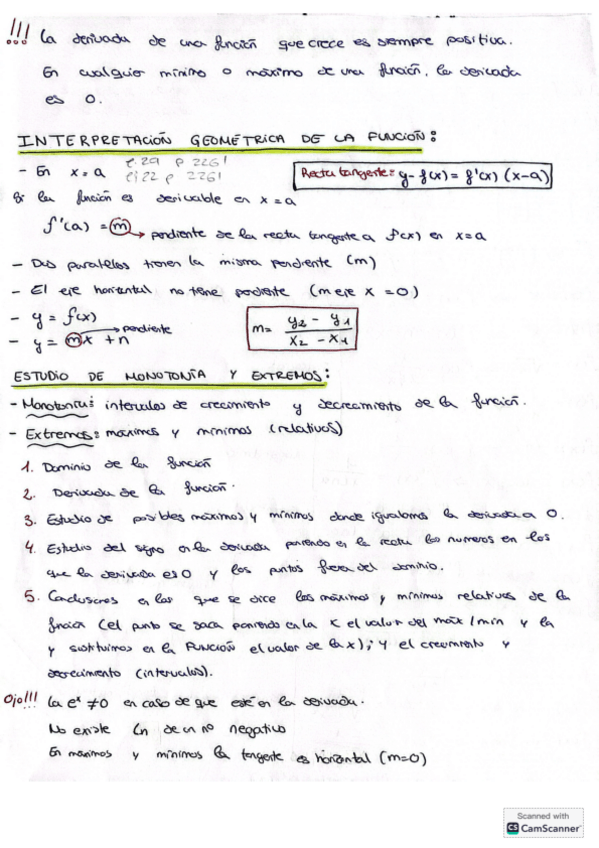 !!! La derivada de una función que crece es siempre positiva.
En cualquier mínimo o máximo de una función, la derivada
es 0.
INTERPRETACIÓN GEOMÉTRICA DE LA FUNCIÓN:
- En x = a
Recta tangente = y - f(x) = f'(x) (x-a)
Si la función es derivable en x = a
f'(a) = m → pendiente de la recta tangente a f(x) en x=a
- Dos paralelas tienen la misma pendiente (m)
- El eje horizontal no tiene pendiente (m eje x = 0)
- y = f(x)
- y = mx + n → pendiente
m = y2 - y1 / x2 - x1
ESTUDIO DE MONOTONÍA Y EXTREMOS:
- Monotonía: intervalos de crecimiento y decrecimiento de la función.
- Extremos: máximos y mínimos (relativos)
1. Dominio de la función
2. Derivada de la función.
3. Estudio de posibles máximos y mínimos donde igualamos la derivada a 0.
4. Estudio del signo en la derivada poniendo en la recta los numeros en los
que la derivada es 0 y los puntos fuera del dominio.
5. Conclusiones en las que se dice los máximos y mínimos relativos de la
función (el punto se saca poniendo en la x el valor del max/min y la
y sustituimos en la FUNCIÓN el valor de la x); y el crecimiento y
decrecimiento (intervalos).
Ojo!!! La eˣ ≠ 0 en caso de que esté en la derivada.
No existe Ln de un nº negativo
En máximos y mínimos la tangente es horizontal (m=0)
Scanned with
CS CamScanner